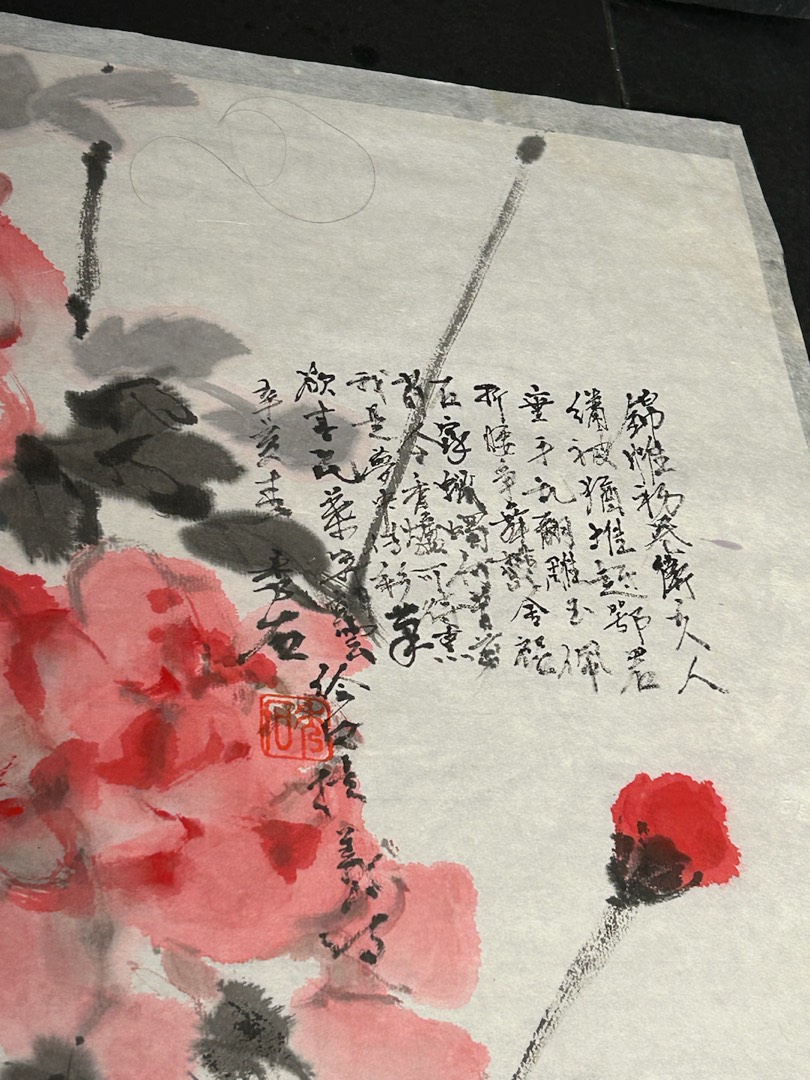 錦幃初卷衛夫人
繡被猶堆越鄂君
垂手亂翻雕玉佩
折腰爭舞鬱金裙
石家蠟燭何曾剪
荀令香爐可待熏
我是夢中傳彩筆
欲書花葉寄朝雲
辛亥春